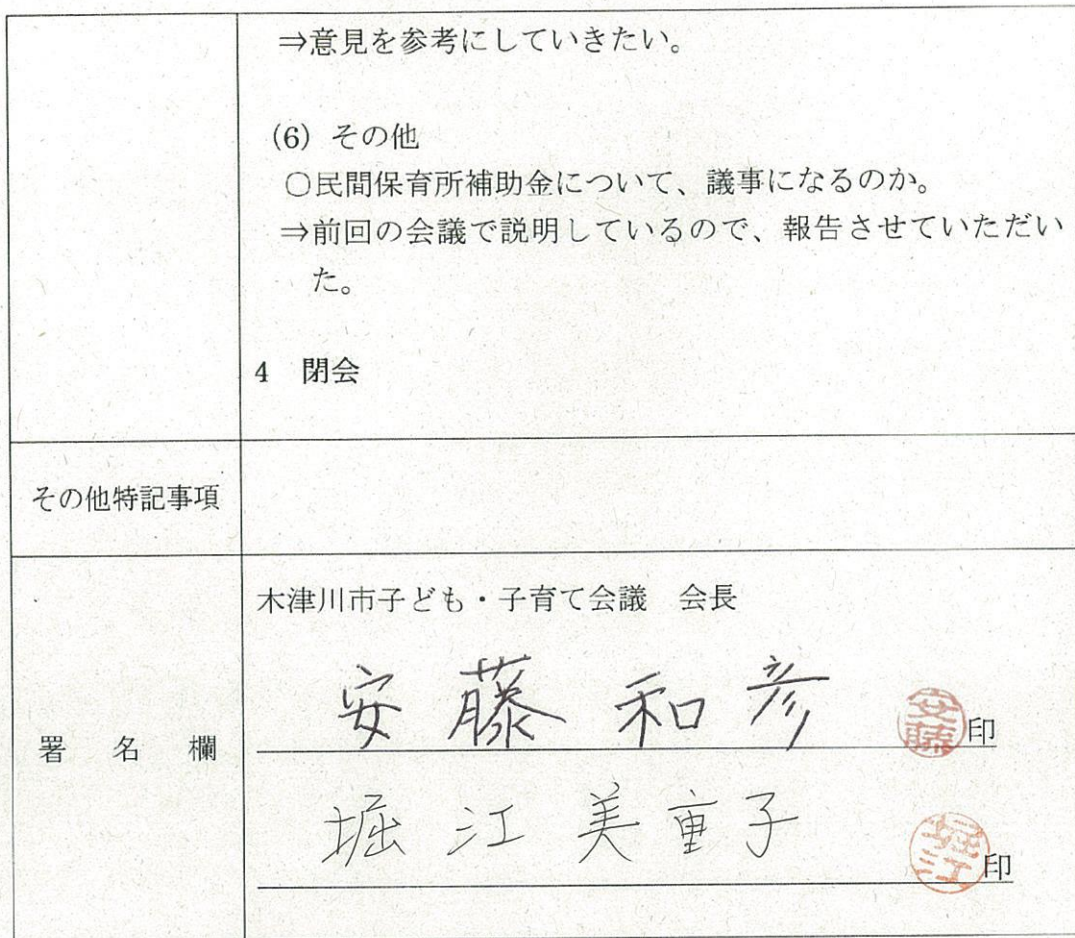 ⇒意見を参考にしていきたい。
(6) その他
○民間保育所補助金について、議事になるのか。
⇒前回の会議で説明しているので、報告させていただい
た。
4 閉会
その他特記事項
木津川市子ども・子育て会議 会長
安藤和彦 安藤 印
署名欄
堀江美重子 堀江 印